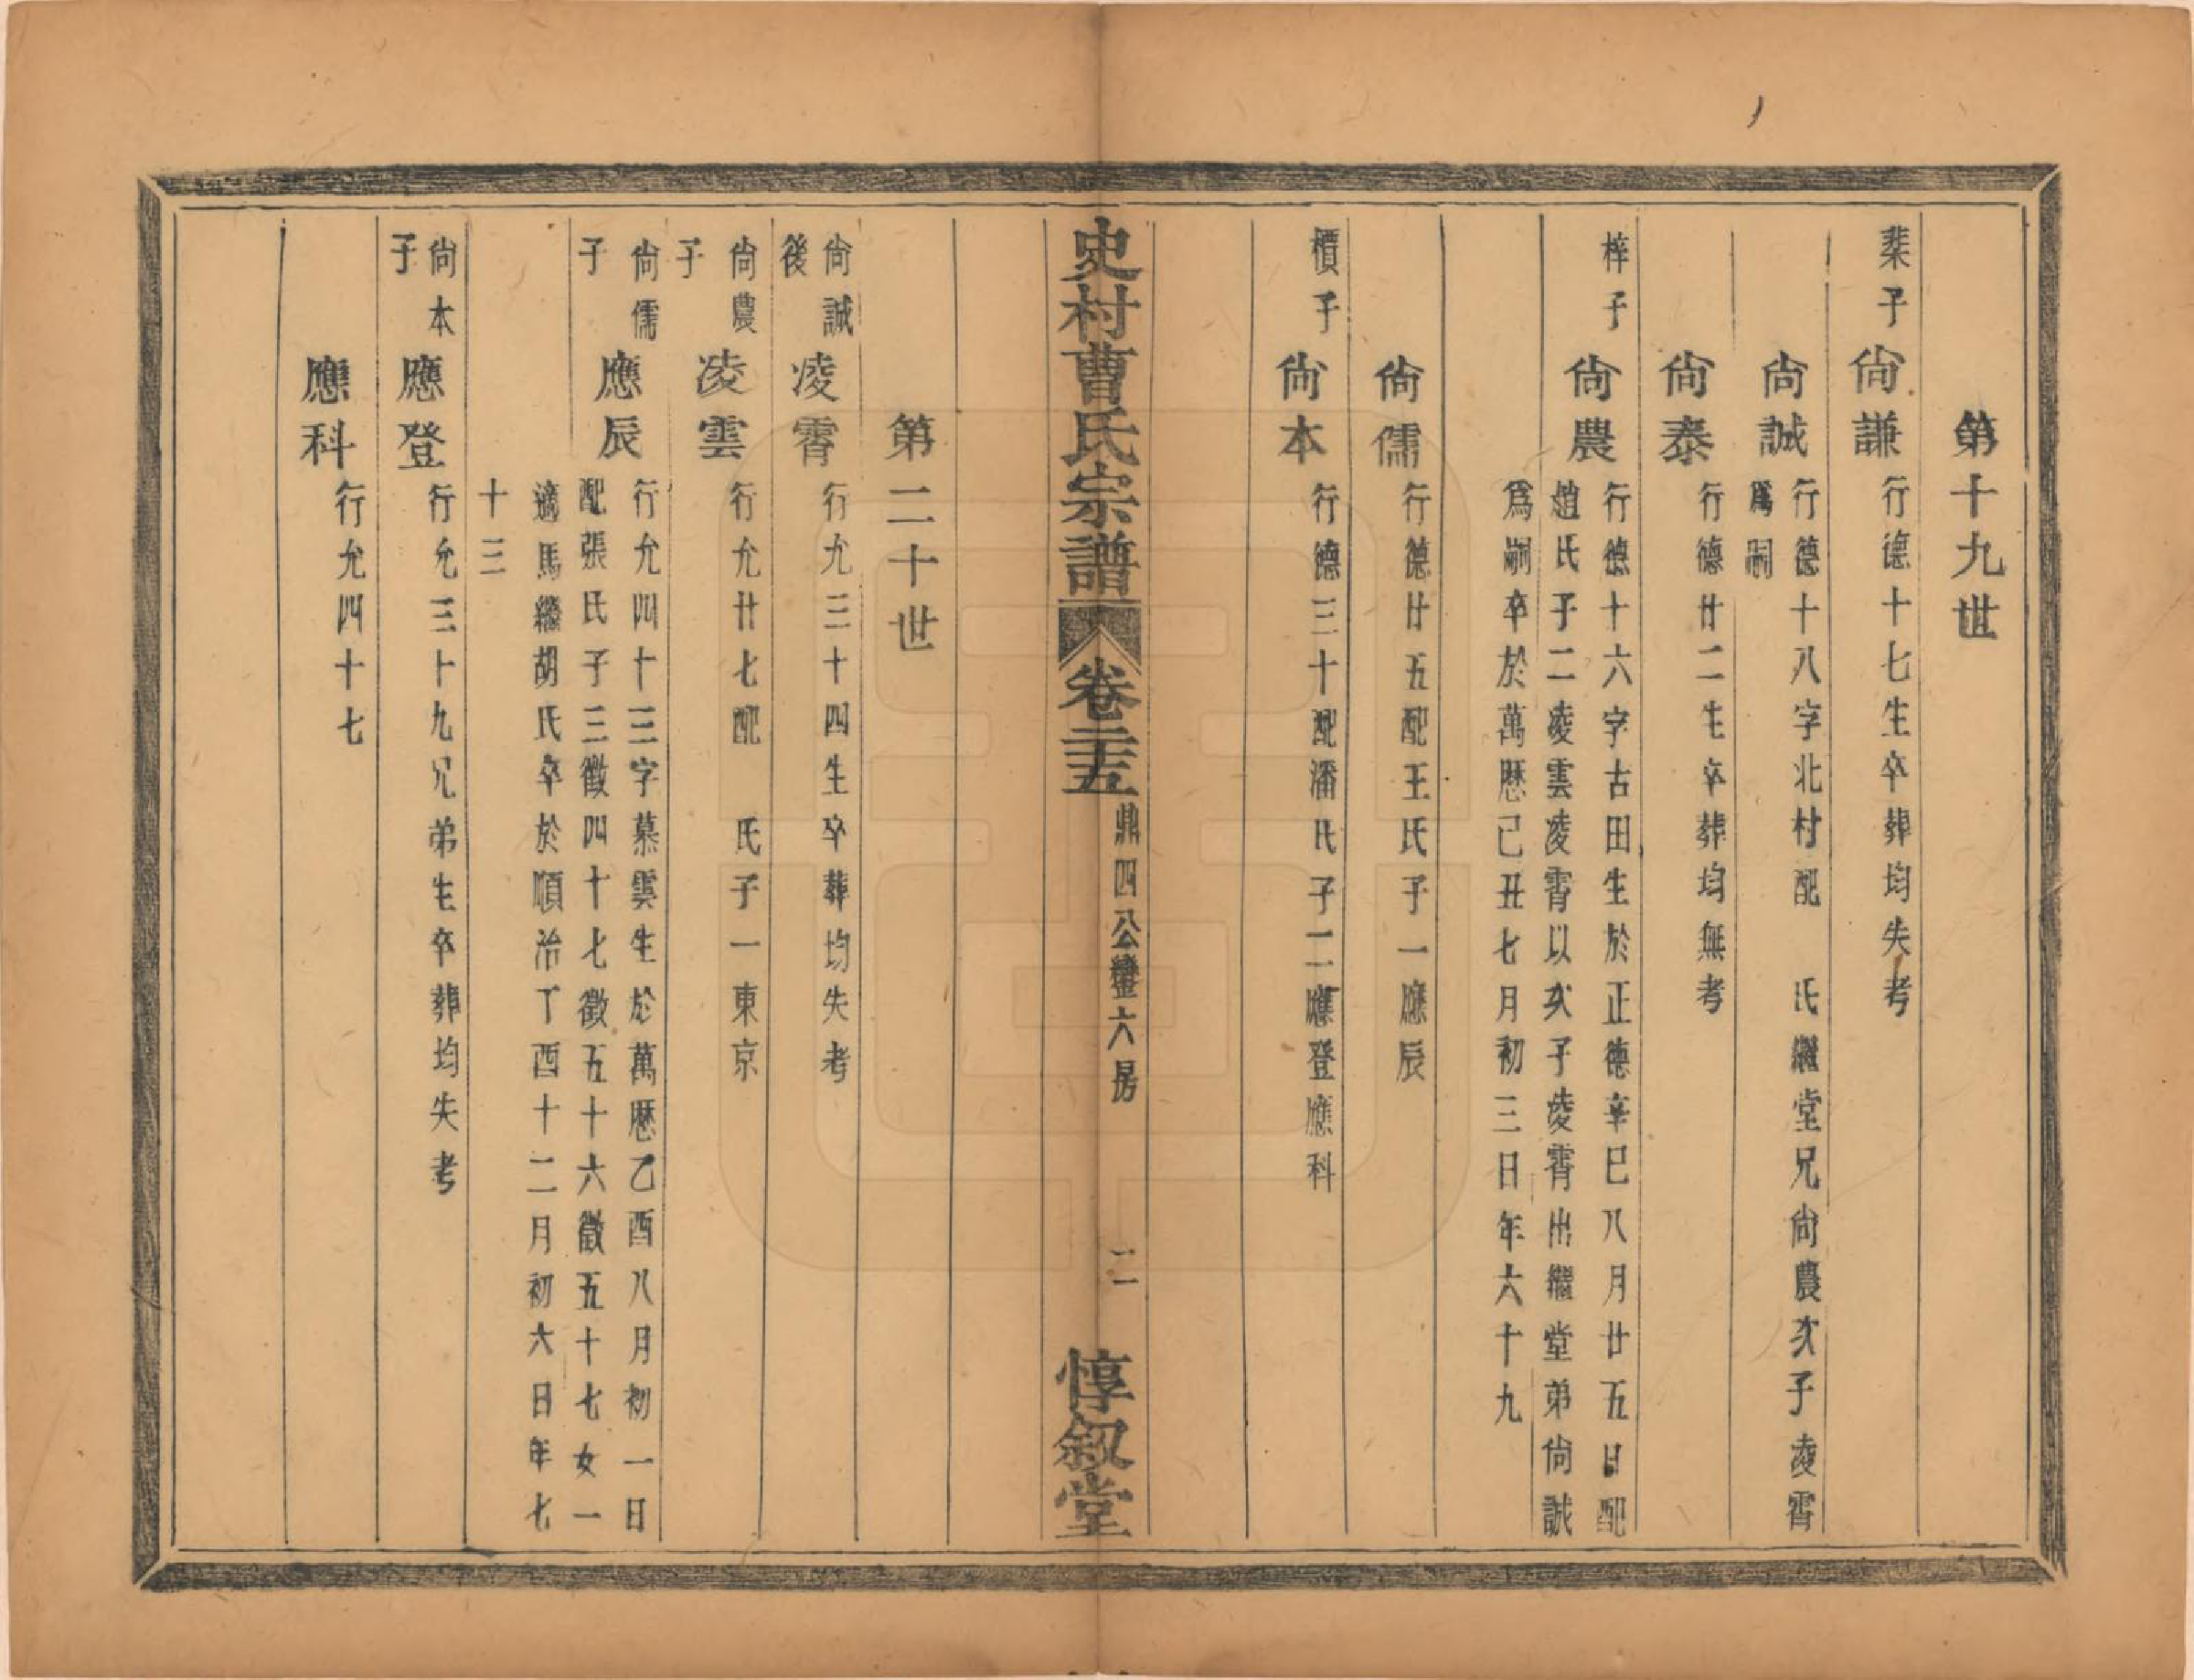 第十九世
棐子 尙謙 行德十七生卒葬均失考
尙誠 行德十八字北村配　氏繼堂兄尙農次子凌霄
爲嗣
尙泰 行德廿二生卒葬均無考
梓子 尙農 行德十六字古田生於正德辛巳八月廿五日配
趙氏子二凌雲凌霄以次子凌霄出繼堂弟尙誠
爲嗣卒於萬歷己丑七月初三日年六十九
尙儒 行德廿五配王氏子一應辰
檟子 尙本 行德三十配潘氏子二應登應科
史村曹氏宗譜 卷二十五 鼎四公鑾六房 二 惇敘堂
第二十世
尙誠後 凌霄 行允三十四生卒葬均失考
尙農子 凌雲 行允廿七配　氏子一東京
尙儒子 應辰 行允四十三字慕雲生於萬歷乙酉八月初一日
配張氏子三徵四十七徵五十六徵五十七女一
適馬繼胡氏卒於順治丁酉十二月初六日年七
十三
尙本子 應登 行允三十九兄弟生卒葬均失考
應科 行允四十七